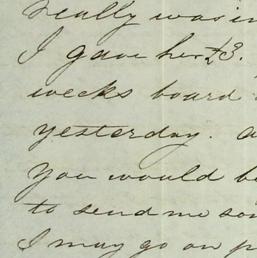 really was in
I gave her £3.
weeks board
yesterday. a
You would be
to send me som
I may go on p